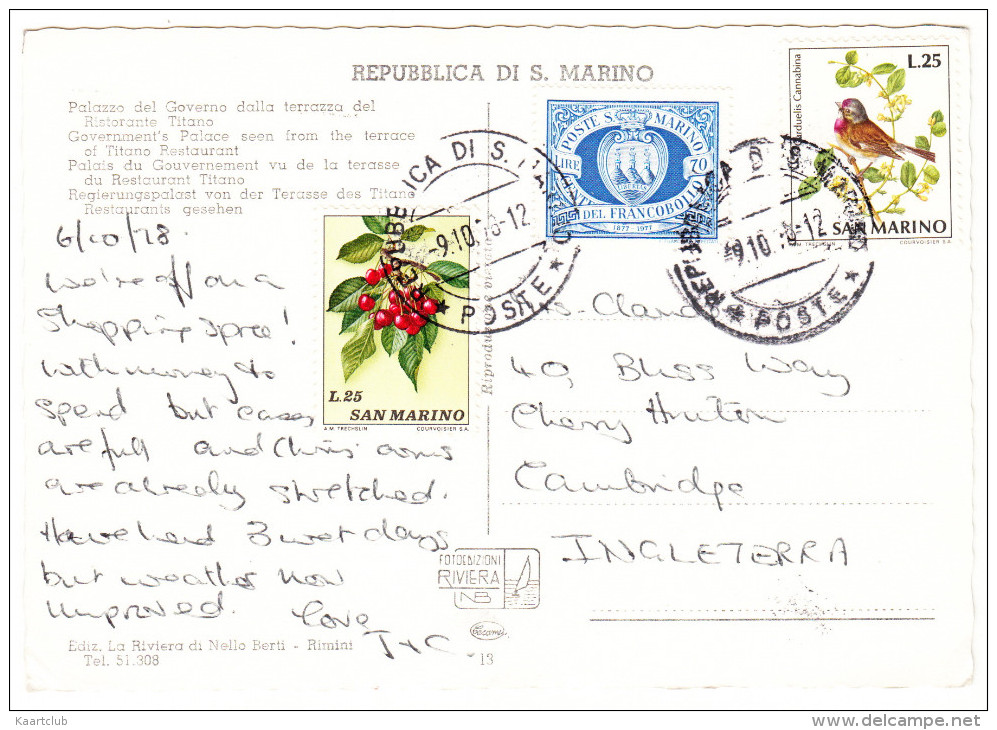 REPUBBLICA DI S. MARINO
Palazzo del Governo dalla terrazza del
Ristorante Titano
Government's Palace seen from the terrace
of Titano Restaurant
Palais du Gouvernement vu de la terasse
du Restaurant Titano
Regierungspalast von der Terasse des Titano
Restaurants gesehen
6/10/78.
We're off on a
Shopping spree!
With money to
spend but cases
are full and Chris' arms
are already stretched.
Have had 3 wet days
but weather now
improved. Love
J+C.
Ediz. La Riviera di Nello Berti - Rimini
Tel. 51.308
13
FOTOEDIZIONI
RIVIERA
NB
L.25
SAN MARINO
A.M. TRECHSLIN COURVOISIER S.A.
POSTE S. MARINO
LIRE 70
DEL FRANCOBOLLO
1877-1977
Carduelis Cannabina
L.25
SAN MARINO
A.M. TRECHSLIN COURVOISIER S.A.
-9.10.78-12
POSTE
-9.10.78-12
POSTE
49 Bliss Way
Cherry Hinton
Cambridge
INGLETERRA
Kaartclub
www.delcampe.net